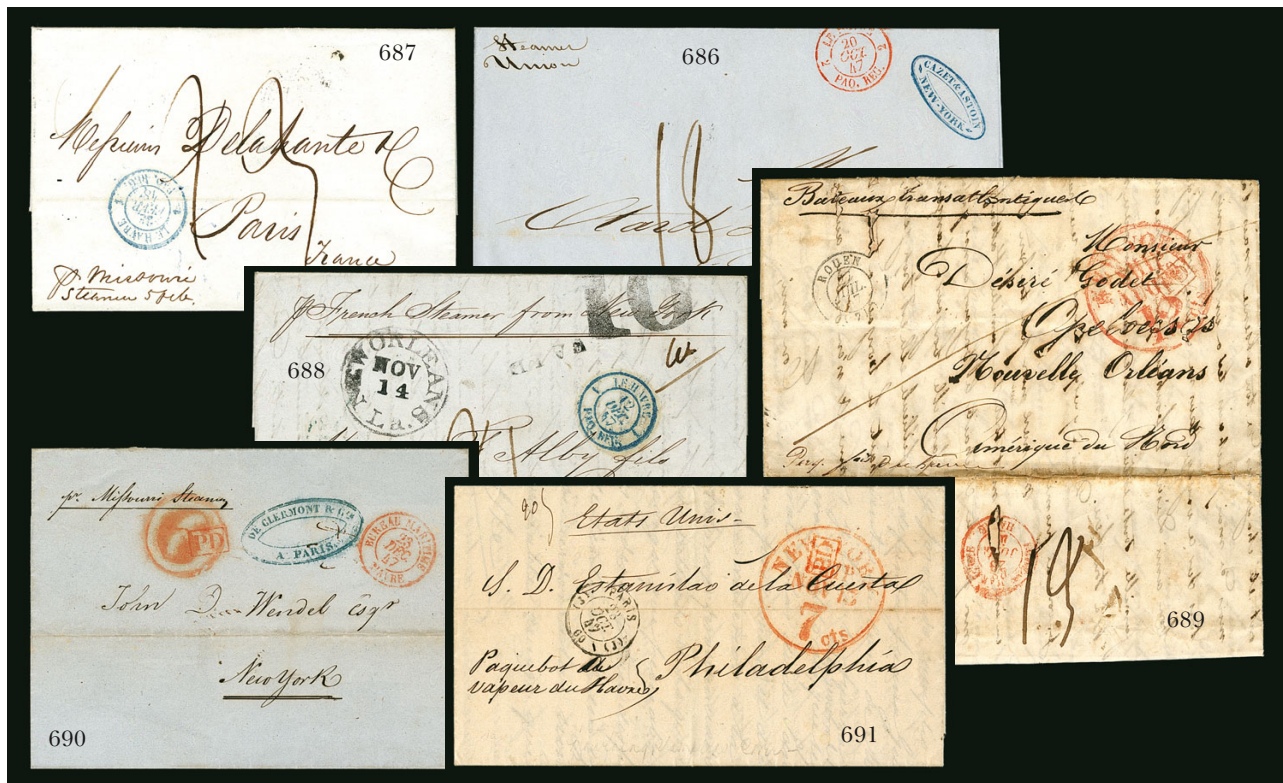 687
Messieurs Delahante &
Paris
France
LE HAVRE
pr. Missouri
Steamer 5 feb.
686
Steamer
Union
20
OCT.
47
PAQ. REG.
CAZET & ASTOIN
NEW-YORK
18
Bateaux transatlantiques
RODEZ
Monsieur
Désiré Godet
Opelousas
Nouvelle Orléans
Amérique du Nord
689
pr French Steamer from New York
10
PAID
688
NEW ORLEANS
NOV
14
LA.
1 LE HAVRE 1
12
DEC.
47
Alby fils
690
pr. Missourri Steamer
PD
DE CLERMONT & Cie
A PARIS
BUREAU MARITIME
23
DEC
47
HAVRE
John D. Wendel Esqr
New York
20
Etats Unis
NEW YORK
PD
7
cts
S. D. Estanislao de la Cuesta
PARIS
23
OCT.
47
Paquebot à
vapeur du Havre
Philadelphia
691